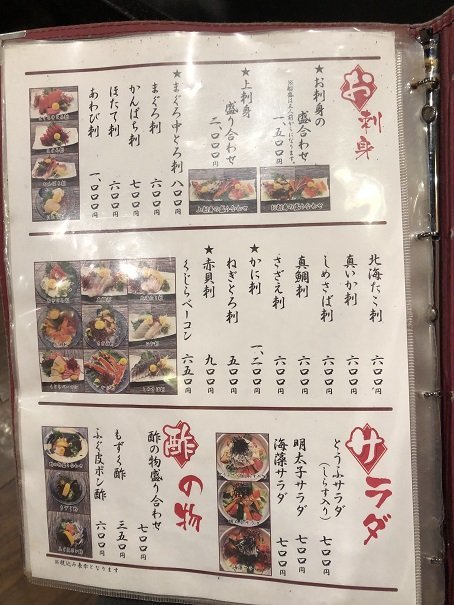 お刺身
★お刺身の
盛り合わせ
一、五〇〇円
★上刺身
盛り合わせ
三、〇〇〇円
★まぐろ中とろ刺 八〇〇円
まぐろ刺 六〇〇円
かんぱち刺 七〇〇円
ほたて刺 六〇〇円
あわび刺 一、〇〇〇円
上刺身の盛り合わせ
お刺身の盛り合わせ
北海たこ刺 六〇〇円
真いか刺 六〇〇円
しめさば刺 六〇〇円
真鯛刺 六〇〇円
さざえ刺 六〇〇円
★かに刺 一、二〇〇円
ねぎとろ刺 五〇〇円
★赤貝刺 九〇〇円
くじらベーコン 六五〇円
サラダ
とうふサラダ 七〇〇円
(しらす入り)
明太子サラダ 七〇〇円
海藻サラダ 七〇〇円
酢の物
酢の物盛り合わせ 七〇〇円
もずく酢 三五〇円
ふぐ皮ポン酢 六〇〇円
※税込み表示となります